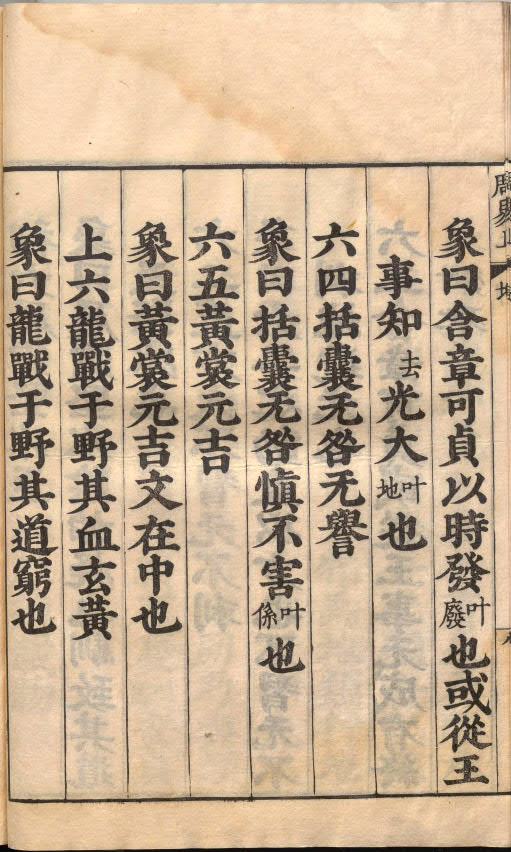 周易上
象曰含章可貞以時發叶廢也或從王
事知去光大叶地也
六四括囊无咎无譽
象曰括囊无咎愼不害叶係也
六五黃裳元吉
象曰黃裳元吉文在中也
上六龍戰于野其血玄黃
象曰龍戰于野其道窮也